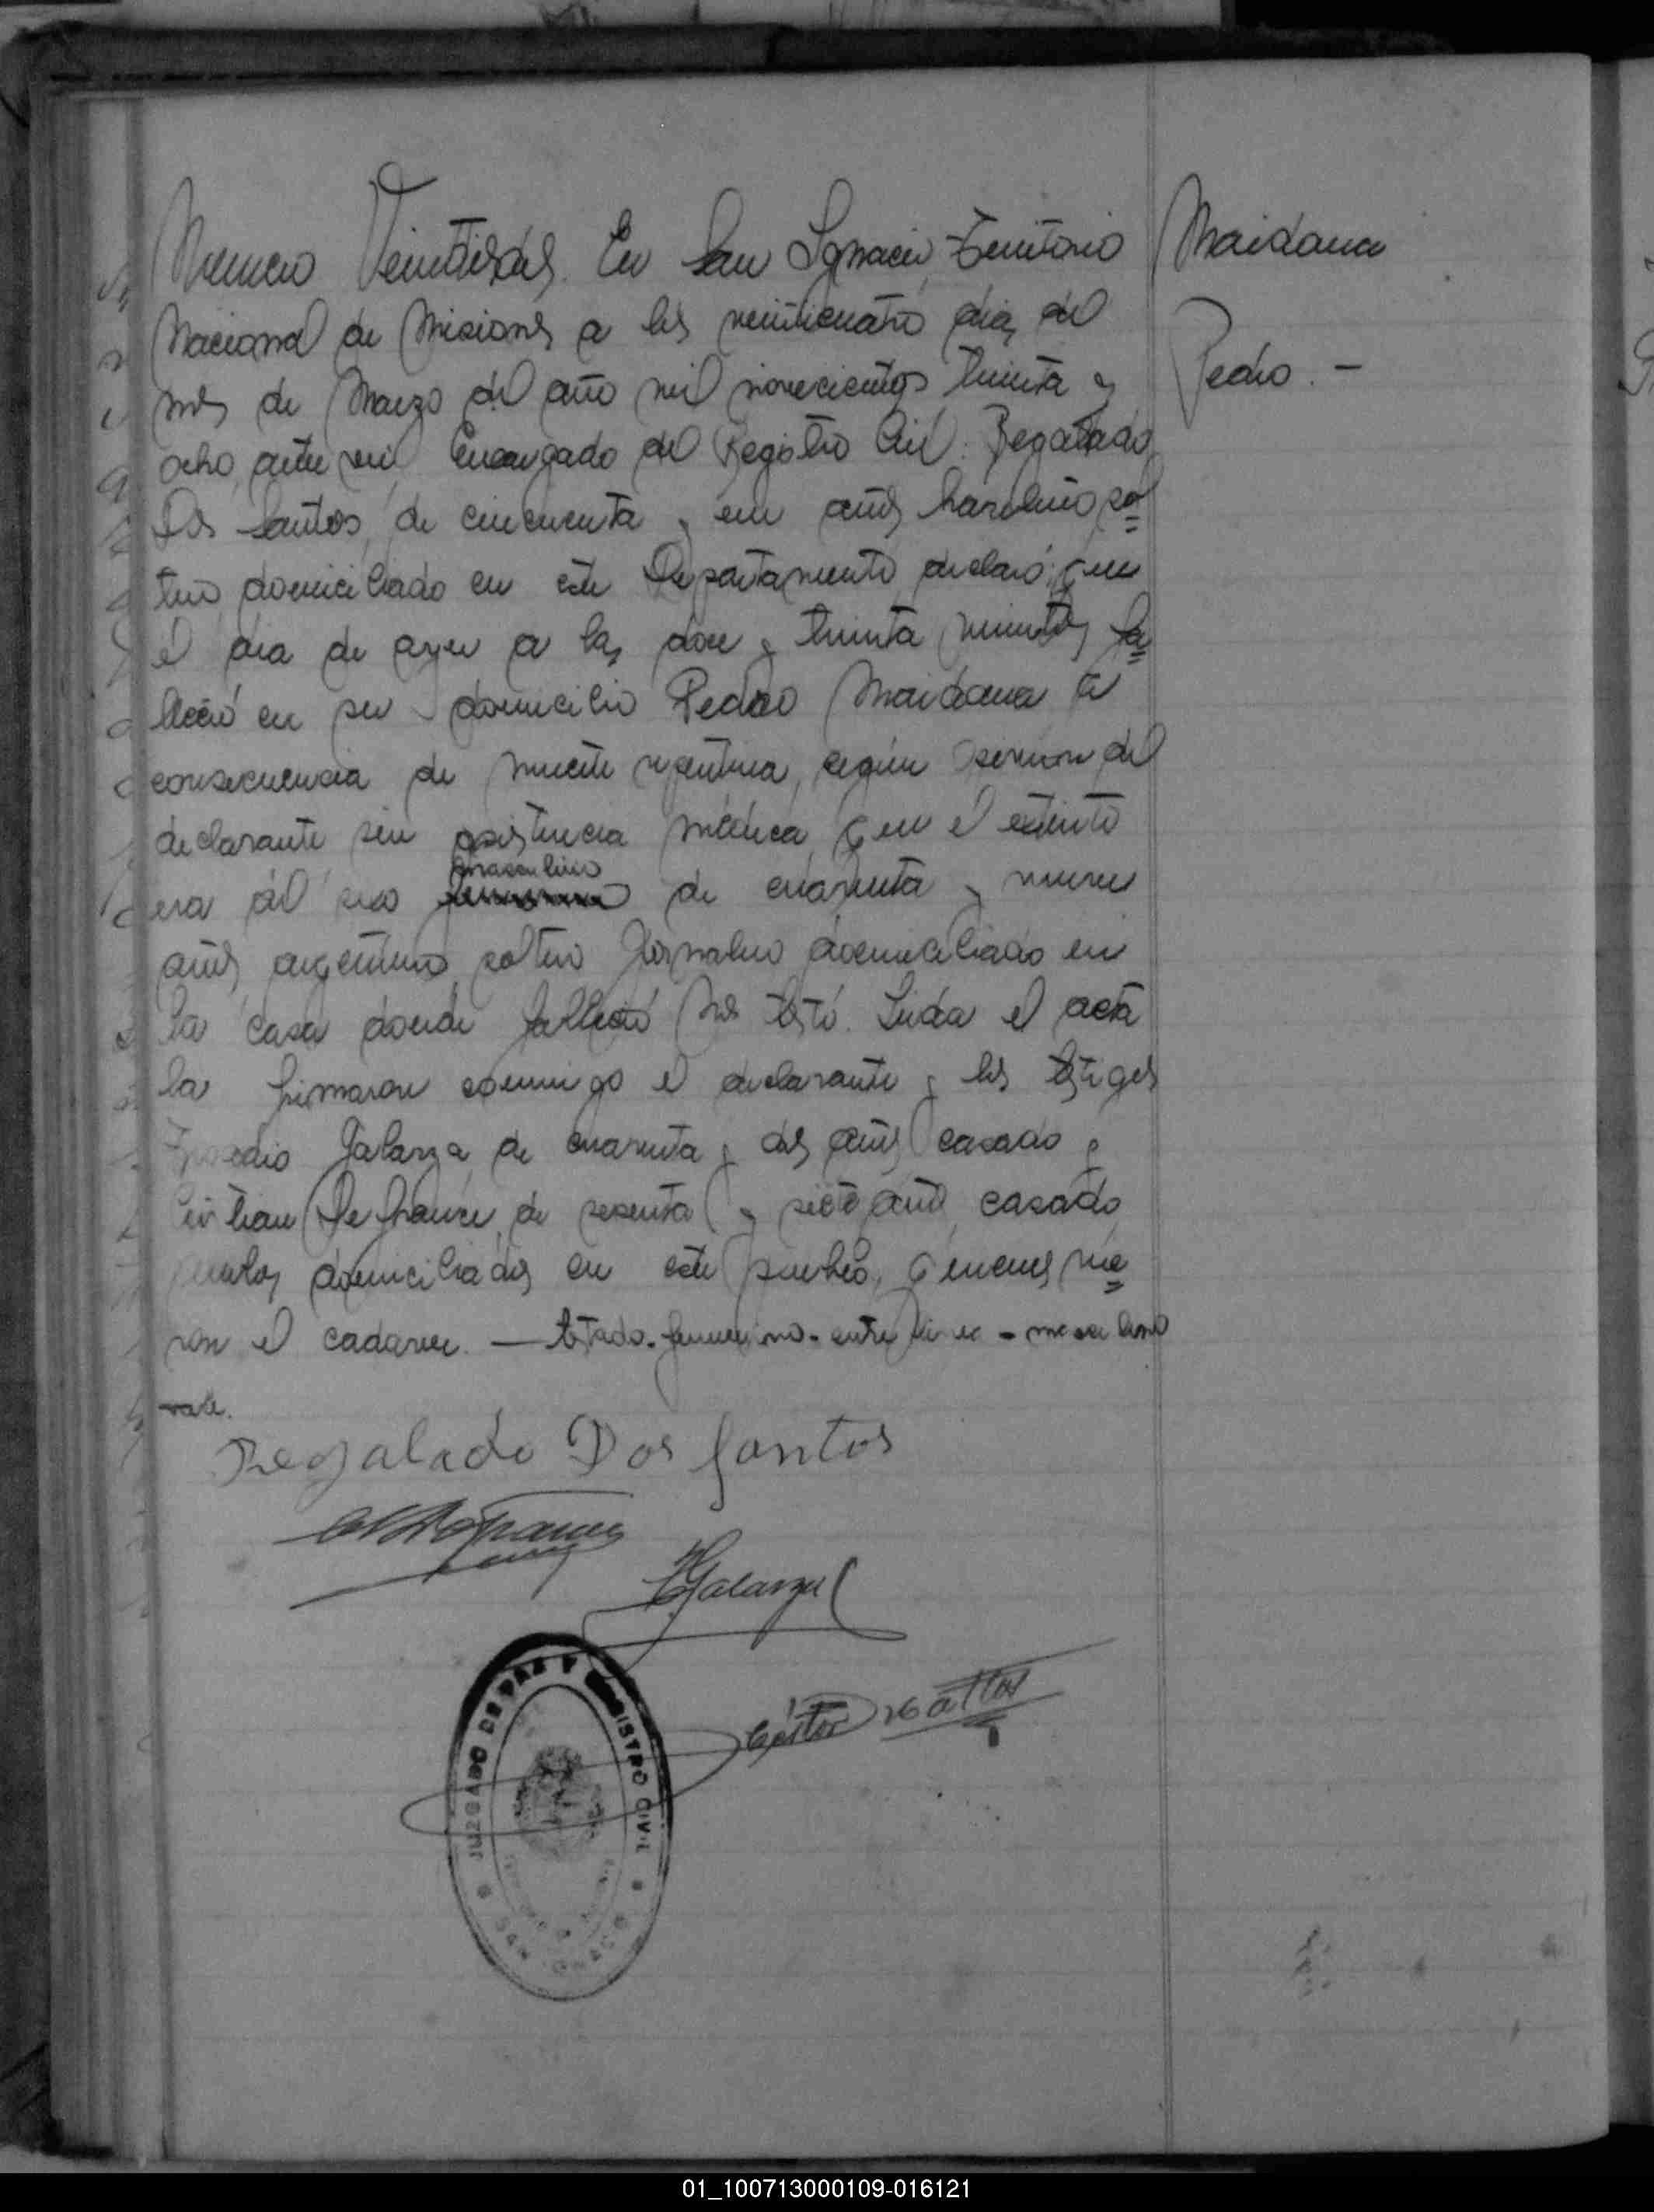 Numero Veintidos. En San Ignacio, Territorio
Nacional de Misiones a los veinticuatro dias del
mes de Marzo del año mil novecientos treinta y
ocho, ante mi Encargado del Registro Civil. Regalado
Dos Santos, de cincuenta y un años, sol=
tero domiciliado en este Departamento, declaró: que
el dia de ayer a las doce y treinta minutos fa=
lleció en su domicilio Pedro Maidana a
consecuencia de muerte repentina, según opinion del
declarante sin asistencia médica, que el extinto
era del sexo masculino de cuarenta y nueve
años, argentino, soltero Jornalero domiciliado en
la casa donde falleció No testó. Leida el acta
la firmaron conmigo el declarante y los testigos
Galarza de cuarenta y dos años casado y
de sesenta y siete años casado
ambos domiciliados en este pueblo, quienes vie=
ron el cadaver. — testado-femenino-entre linea-masculino
vale.
Maidana
Pedro. -
Regalado Dos Santos
Galarza
Castor
JUZGADO DE PAZ Y REGISTRO CIVIL
SAN IGNACIO
01_100713000109-016121